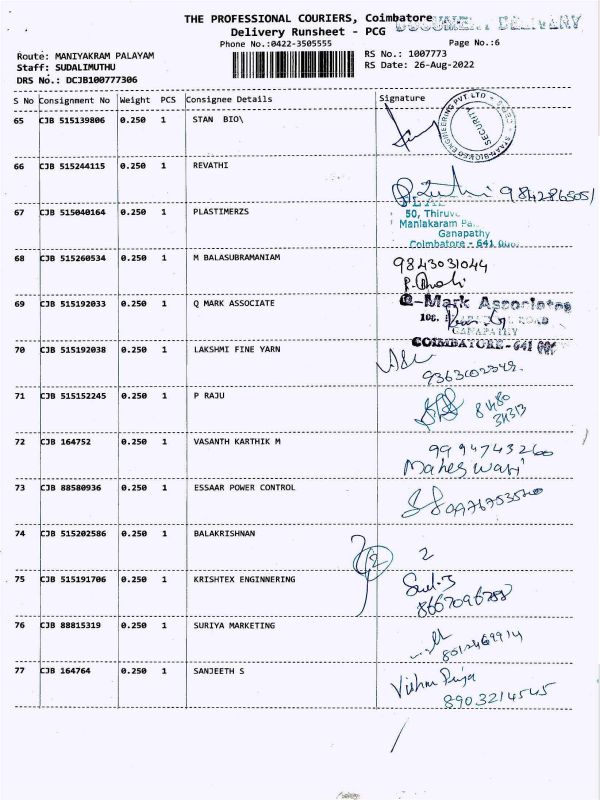 THE PROFESSIONAL COURIERS, Coimbatore
DOCUMENT DELIVARY
Delivery Runsheet - PCG
Phone No.:0422-3505555
Page No.:6
Route: MANIYAKRAM PALAYAM
RS No.: 1007773
Staff: SUDALIMUTHU
RS Date: 26-Aug-2022
DRS No.: DCJB100777306
S No Consignment No Weight PCS Consignee Details Signature
65 CJB 515139806 0.250 1 STAN BIO\
SECURITY
66 CJB 515244115 0.250 1 REVATHI
67 CJB 515040164 0.250 1 PLASTIMERZS
50, Thiruv
Maniakaram Pa
Ganapathy
Coimbatore - 641 006
68 CJB 515260534 0.250 1 M BALASUBRAMANIAM
9843031044
69 CJB 515192033 0.250 1 Q MARK ASSOCIATE
Q-Mark Associates
108, ROAD
GANAPATHY
COIMBATORE - 641 006
70 CJB 515192038 0.250 1 LAKSHMI FINE YARN
71 CJB 515152245 0.250 1 P RAJU
72 CJB 164752 0.250 1 VASANTH KARTHIK M
9994743260
Maheswari
73 CJB 88580936 0.250 1 ESSAAR POWER CONTROL
74 CJB 515202586 0.250 1 BALAKRISHNAN
2 2
75 CJB 515191706 0.250 1 KRISHTEX ENGINNERING
8667096788
76 CJB 88815319 0.250 1 SURIYA MARKETING
77 CJB 164764 0.250 1 SANJEETH S
Vishnu Priya
8903214545